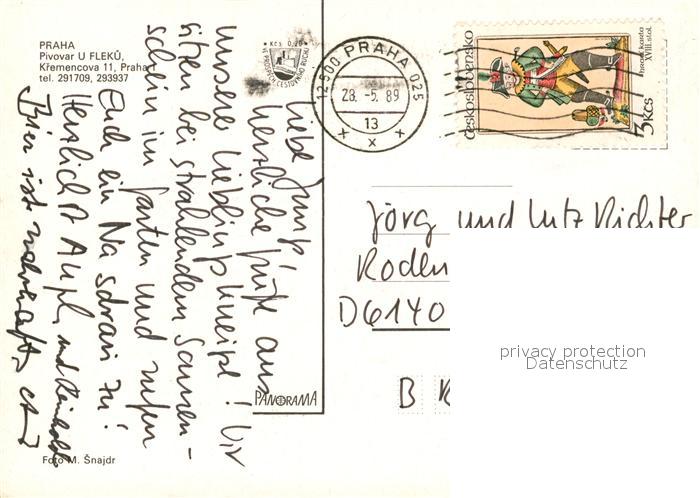 PRAHA
Pivovar U FLEKŮ,
Křemencova 11, Praha 1
tel. 291709, 293937
Kčs 0,20
12500 PRAHA 025
28. -5. 89
13
československo
herní karta
XVIII. stol.
3 Kčs
Liebe Jungs,
herzliche Grüße aus
unserer Lieblingskneipe! Wir
sitzen bei strahlendem Sonnen-
schein im Garten und rufen
Euch ein Na sdravi zu!
Herzlichst und Reinhold
Bier ist nahrhaft,
Jörg und Lutz Richter
Roden
D6140
B
PANORAMA
Foto M. Šnajdr
privacy protection
Datenschutz